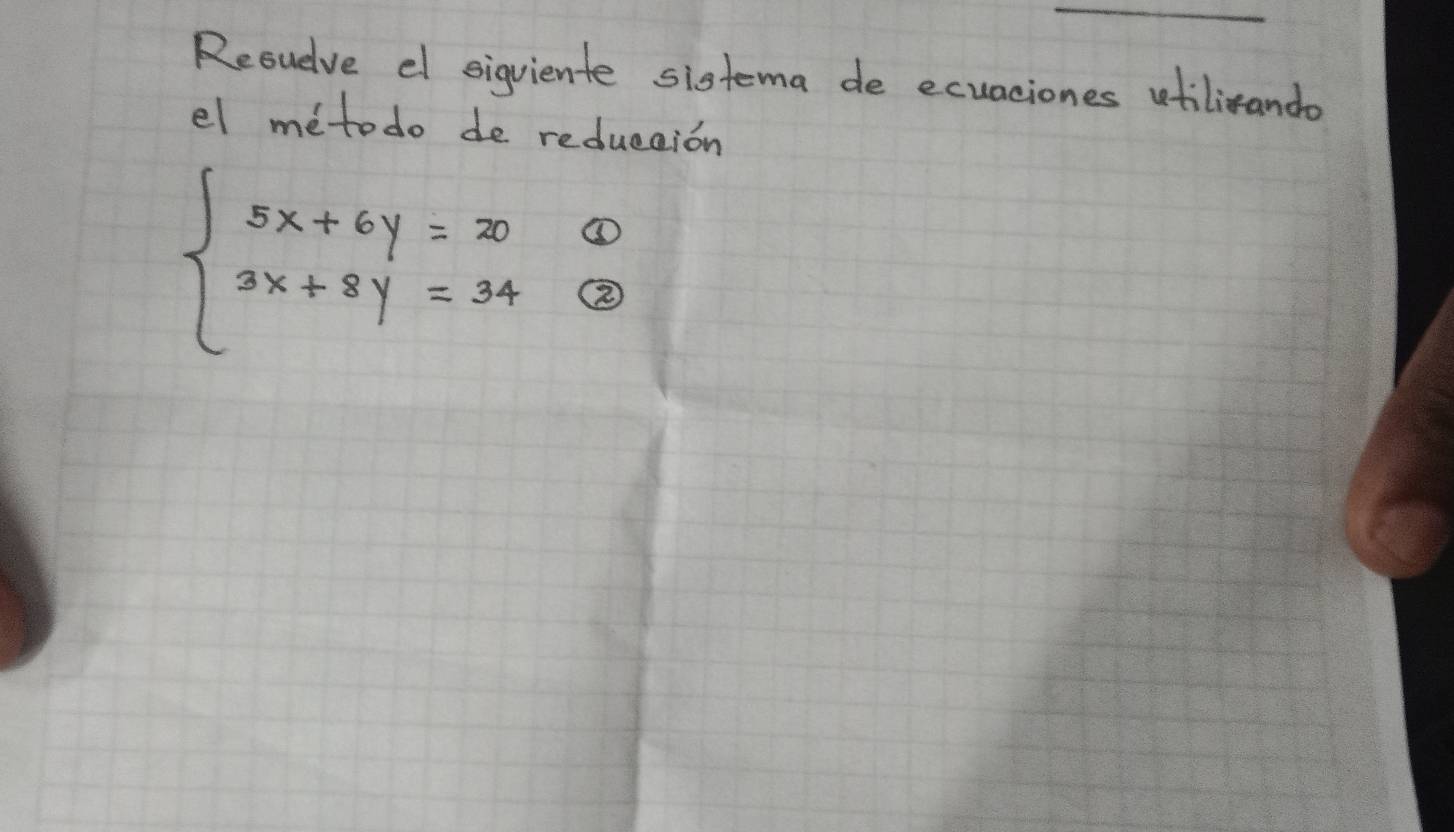 Resuelve el siguiente sistema de ecuaciones utilizando
el método de reducción
5x + 6y = 20 ①
3x + 8y = 34 ②